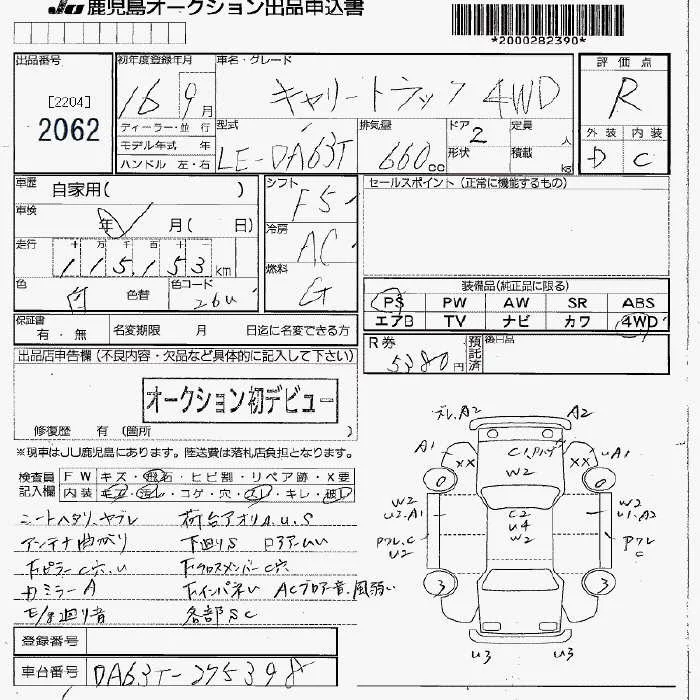 JU 鹿児島オークション出品申込書
*2000282390*
出品番号
[2204]
2062
初年度登録年月
16 9月
ディーラー・並行
モデル年式 年
ハンドル 左・右
車名・グレード
キャリートラック 4WD
型式
LE-DA63T
排気量
660cc
ドア 2
形状
定員 人
積載 kg
評価点
R
外装 内装
D C
車歴 自家用( )
車検 年 月( 日)
走行 十万千百十一
115,153km
色 白 色替 色コード 26U
シフト F5
冷房 AC
燃料 G
セールスポイント (正常に機能するもの)
装備品(純正品に限る)
PS PW AW SR ABS
エアB TV ナビ カワ 4WD
保証書 有・無 名変期限 月 日迄に名変できる方
R券 5380円 預託済 後日品
出品店申告欄 (不良内容・欠品など具体的に記入して下さい)
オークション初デビュー
修復歴 有 (箇所 )
※現車はJU鹿児島にあります。陸送費は落札店負担となります。
検査員記入欄
FW キズ・飛石・ヒビ割・リペア跡・X要
内装 キズ・汚レ・コゲ・穴・スレ・キレ・破レ
シートヘタリ、ヤブレ 荷台アオリA.U.S
アンテナ曲がり 下廻りS
下ピラーC穴.U 下クロスメンバーC穴
カミラーA ACブロアー音.風弱い
各部SC
登録番号
車台番号 DA63T-275398
ズレ.A2 A2
A1 XX C1. XX UA1
W2
0 0
W2 C2 W2
U3.A1 U4 U1.A2
W2
C C
U2
3 3
U3 U3